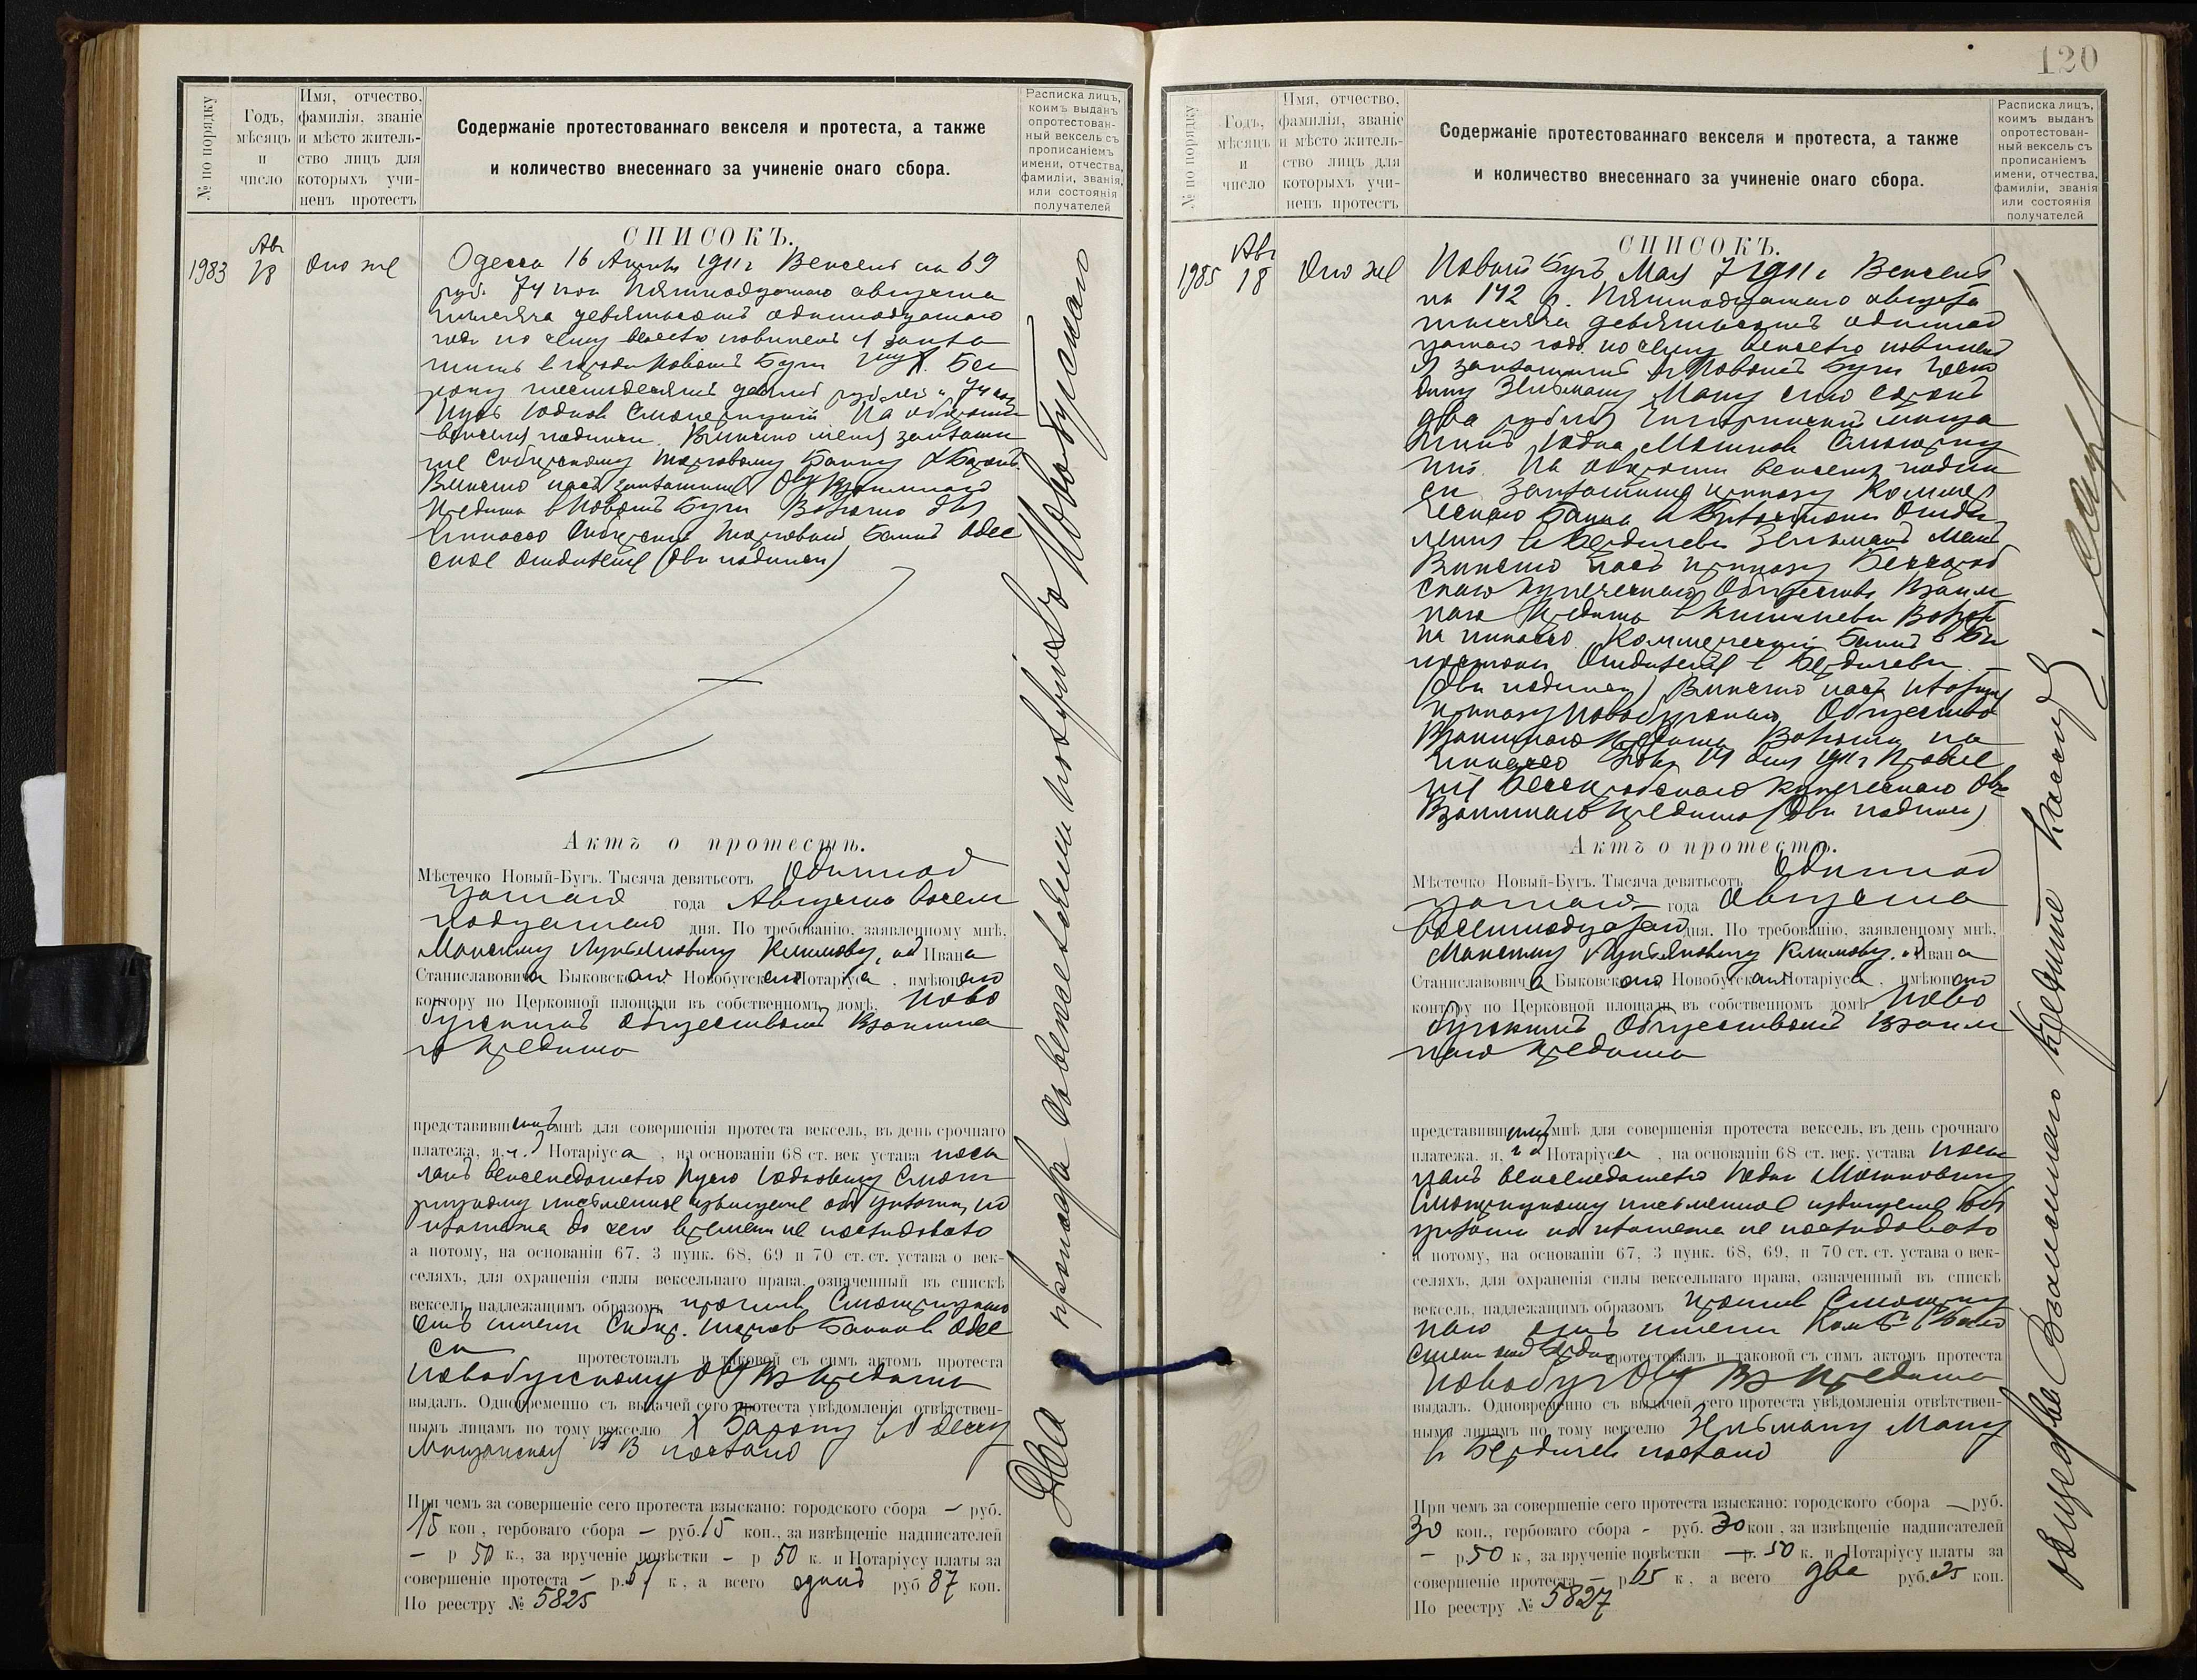 № по порядку
Годъ, мѣсяцъ и число
Имя, отчество, фамилія, званіе и мѣсто жительство лицъ для которыхъ учиненъ протестъ
Содержаніе протестованнаго векселя и протеста, а также
и количество внесеннаго за учиненіе онаго сбора.
Расписка лицъ, коимъ выданъ опротестованный вексель съ прописаніемъ имени, отчества, фамиліи, званія, или состоянія получателей
1983
Авг 18
Оно же
СПИСОКЪ.
Одесса 16 1911 г Вексель на 69
руб. 74 коп Пятнадцатаго августа
тысяча девятьсотъ одинадцатаго
года по сему векселю повиненъ я запла
тить в городи Новомъ Буги
рону шестьдесятъ девять рублей и 74 коп
На обороти
векселя подписи. Вмисто меня заплати
те Сибирскому Торговому Банку Х Баронъ
Вмисто насъ заплатите Взаимнаго
Кредита в Новомъ Буги Валюта для
инкассо Сибирский Торговый Банкъ Одес
ское Отдиление (дви подписи)
Актъ о протестѣ.
Мѣстечко Новый-Бугъ. Тысяча девятьсотъ Одиннад
цатаго года Августа восем
надцатаго дня. По требованію, заявленному мнѣ,
Максиму Лукьяновичу Климову, Ивана
Станиславовича Быковскаго Новобугскаго Нотаріуса, имѣющаго
контору по Церковной площади въ собственномъ домѣ, Ново
бугскимъ Обществомъ Взаимна
го Кредита
представившимъ мнѣ для совершенія протеста вексель, въ день срочнаго
платежа, я, Нотаріуса, на основаніи 68 ст. век устава посы
лалъ векселедателю
письменное извищение объ уплати, но
платежа до сего времени не последовало
а потому, на основаніи 67, 3 пунк. 68, 69 и 70 ст. ст. устава о век-
селяхъ, для охраненія силы вексельнаго права, означенный въ спискѣ
вексель, надлежащимъ образомъ против
отъ имени Сибир. Торгов Банка в Одес
си протестовалъ и таковой съ симъ актомъ протеста
Новобугскому Взаимн Кредита
выдалъ. Одновременно съ выдачей сего протеста увѣдомленія отвѣтствен-
нымъ лицамъ по тому векселю Х Барону в Одессу
послано
При чемъ за совершеніе сего протеста взыскано: городского сбора – руб.
15 коп, гербоваго сбора – руб. 15 коп., за извѣщеніе надписателей
– р 50 к., за врученіе повѣстки – р 50 к. и Нотаріусу платы за
совершеніе протеста – р. 57 к, а всего одинъ руб 87 коп.
По реестру № 5825
120
№ по порядку
Годъ, мѣсяцъ и число
Имя, отчество, фамилія, званіе и мѣсто жительство лицъ для которыхъ учиненъ протестъ
Содержаніе протестованнаго векселя и протеста, а также
и количество внесеннаго за учиненіе онаго сбора.
Расписка лицъ, коимъ выданъ опротестованный вексель съ прописаніемъ имени, отчества, фамиліи, званія или состоянія получателей
1985
Авг 18
Оно же
СПИСОКЪ.
Новый Бугъ Мая 7 1911 г Вексель
на 142 р. Пятнадцатаго августа
тысяча девятьсотъ одиннад
цатаго года по сему векселю повиненъ
я заплатить в Новомъ Буги Госпо
дину Зельману Ману сто сорокъ
два рубля
На обороти векселя подпи
си Заплатите приказу Коммер
ческаго Банка в Отди
ления в Бердичеви Зельманъ Манъ
Вмисто насъ приказу Бессараб
скаго Купеческаго Общества Взаим
наго Кредита в Кишиневи Валюта
на инкассо Коммерческий Банкъ в
Отдиление в Бердичеви
(дви подписи) Вмисто насъ платите
приказу Новобугскаго Общества
Взаимнаго Кредита Валюта на
инкассо 14 дня 1911 г Правле
ние Бессарабскаго Купеческаго
Взаимнаго Кредита (дви подписи)
Актъ о протестѣ.
Мѣстечко Новый-Бугъ. Тысяча девятьсотъ Одиннад
цатаго года Августа
восемнадцатаго дня. По требованію, заявленному мнѣ,
Максиму Лукьяновичу Климову, Ивана
Станиславовича Быковскаго Новобугскаго Нотаріуса, имѣющаго
контору по Церковной площади въ собственномъ домѣ Ново
бугскимъ Обществомъ Взаим
наго Кредита
представившимъ мнѣ для совершенія протеста вексель, въ день срочнаго
платежа, я, Нотаріуса, на основаніи 68 ст. век. устава посы
лалъ векселедателю
письменное извищение объ
уплати но платежа не последовало
а потому, на основаніи 67, 3 пунк. 68, 69, и 70 ст. ст. устава о век-
селяхъ, для охраненія силы вексельнаго права, означенный въ спискѣ
вексель, надлежащимъ образомъ против
отъ имени
протестовалъ и таковой съ симъ актомъ протеста
Новобуг Вз Кредита
выдалъ. Одновременно съ выдачей сего протеста увѣдомленія отвѣтствен-
нымъ лицамъ по тому векселю Зельману Ману
в Бердичев послано
При чемъ за совершеніе сего протеста взыскано: городского сбора – руб.
30 коп., гербоваго сбора - руб. 30 коп, за извѣщеніе надписателей
– р 50 к, за врученіе повѣстки – р. 50 к. и Нотаріусу платы за
совершеніе протеста – р 65 к, а всего два руб. 25 коп.
По реестру № 5827
Два протеста с векселями получилъ Новобугскаго
общества Взаимнаго Кредита